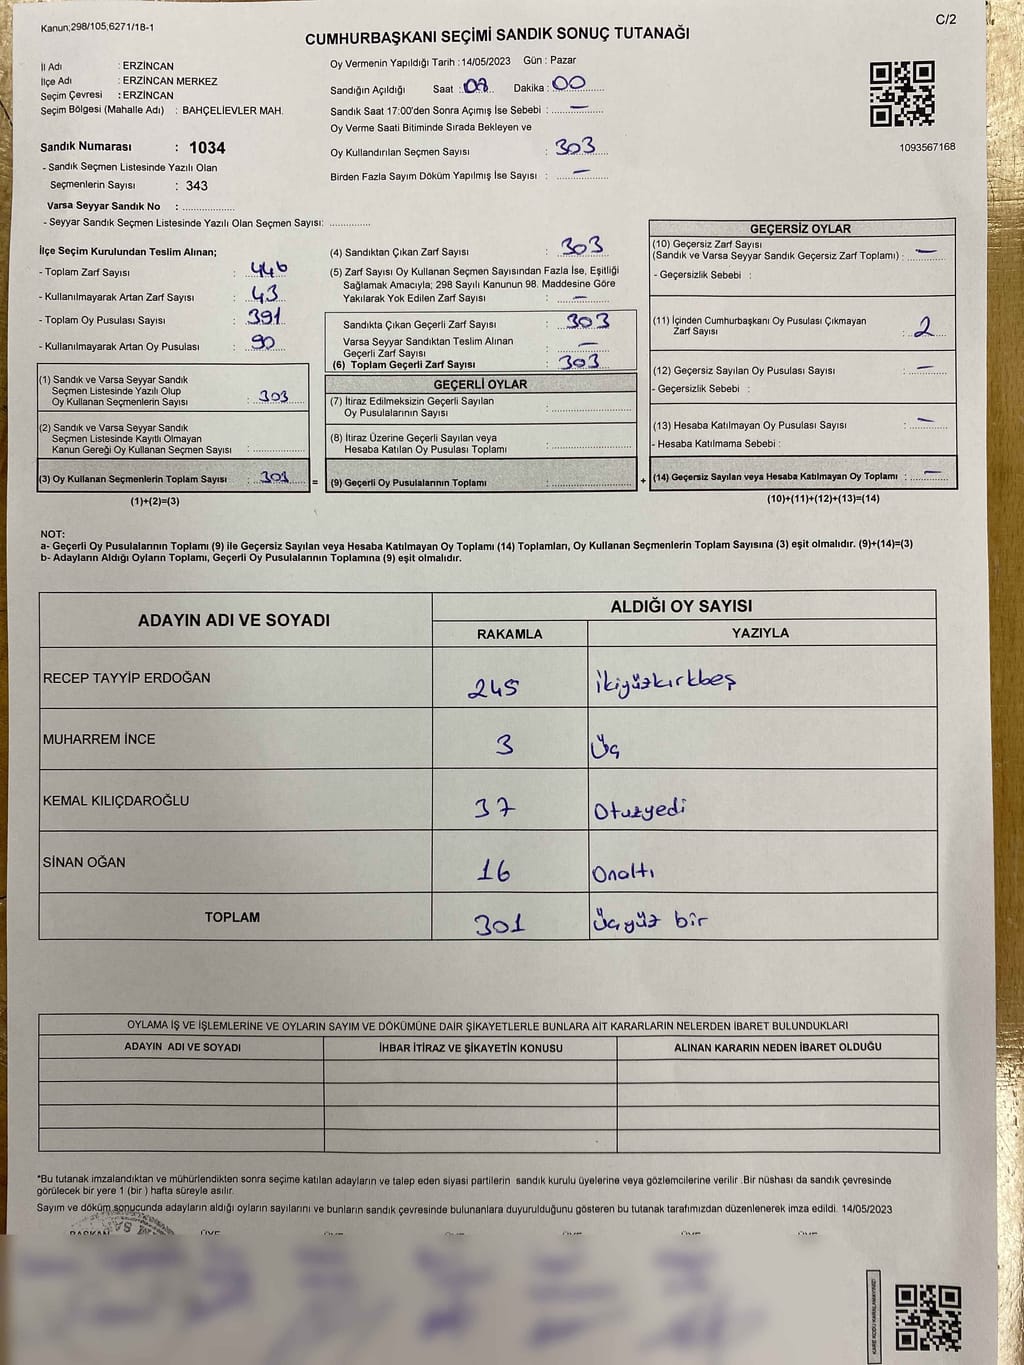 Kanun;298/105,6271/18-1
C/2
CUMHURBAŞKANI SEÇİMİ SANDIK SONUÇ TUTANAĞI
İl Adı : ERZİNCAN
İlçe Adı : ERZİNCAN MERKEZ
Seçim Çevresi : ERZİNCAN
Seçim Bölgesi (Mahalle Adı) : BAHÇELİEVLER MAH.
Sandık Numarası : 1034
- Sandık Seçmen Listesinde Yazılı Olan
Seçmenlerin Sayısı : 343
Varsa Seyyar Sandık No : ..............
- Seyyar Sandık Seçmen Listesinde Yazılı Olan Seçmen Sayısı: ..............
Oy Vermenin Yapıldığı Tarih : 14/05/2023 Gün : Pazar
Sandığın Açıldığı Saat : 08 Dakika : 00
Sandık Saat 17:00'den Sonra Açımış İse Sebebi : —
Oy Verme Saati Bitiminde Sırada Bekleyen ve
Oy Kullandırılan Seçmen Sayısı : 303
Birden Fazla Sayım Döküm Yapılmış İse Sayısı : —
1093567168
İlçe Seçim Kurulundan Teslim Alınan;
- Toplam Zarf Sayısı : 446
- Kullanılmayarak Artan Zarf Sayısı : 43
- Toplam Oy Pusulası Sayısı : 391
- Kullanılmayarak Artan Oy Pusulası : 90
(1) Sandık ve Varsa Seyyar Sandık
Seçmen Listesinde Yazılı Olup
Oy Kullanan Seçmenlerin Sayısı : 303
(2) Sandık ve Varsa Seyyar Sandık
Seçmen Listesinde Kayıtlı Olmayan
Kanun Gereği Oy Kullanan Seçmen Sayısı : ..............
(3) Oy Kullanan Seçmenlerin Toplam Sayısı : 303 =
(1)+(2)=(3)
(4) Sandıktan Çıkan Zarf Sayısı : 303
(5) Zarf Sayısı Oy Kullanan Seçmen Sayısından Fazla İse, Eşitliği
Sağlamak Amacıyla; 298 Sayılı Kanunun 98. Maddesine Göre
Yakılarak Yok Edilen Zarf Sayısı : —
Sandıkta Çıkan Geçerli Zarf Sayısı : 303
Varsa Seyyar Sandıktan Teslim Alınan
Geçerli Zarf Sayısı : —
(6) Toplam Geçerli Zarf Sayısı : 303
GEÇERLİ OYLAR
(7) İtiraz Edilmeksizin Geçerli Sayılan
Oy Pusulalarının Sayısı : ..............
(8) İtiraz Üzerine Geçerli Sayılan veya
Hesaba Katılan Oy Pusulası Toplamı : ..............
(9) Geçerli Oy Pusulalarının Toplamı : .............. +
GEÇERSİZ OYLAR
(10) Geçersiz Zarf Sayısı
(Sandık ve Varsa Seyyar Sandık Geçersiz Zarf Toplamı) : —
- Geçersizlik Sebebi :
(11) İçinden Cumhurbaşkanı Oy Pusulası Çıkmayan
Zarf Sayısı : 2
(12) Geçersiz Sayılan Oy Pusulası Sayısı : —
- Geçersizlik Sebebi :
(13) Hesaba Katılmayan Oy Pusulası Sayısı : —
- Hesaba Katılmama Sebebi :
(14) Geçersiz Sayılan veya Hesaba Katılmayan Oy Toplamı : —
(10)+(11)+(12)+(13)=(14)
NOT:
a- Geçerli Oy Pusulalarının Toplamı (9) ile Geçersiz Sayılan veya Hesaba Katılmayan Oy Toplamı (14) Toplamları, Oy Kullanan Seçmenlerin Toplam Sayısına (3) eşit olmalıdır. (9)+(14)=(3)
b- Adayların Aldığı Oyların Toplamı, Geçerli Oy Pusulalarının Toplamına (9) eşit olmalıdır.
ADAYIN ADI VE SOYADI
ALDIĞI OY SAYISI
RAKAMLA YAZIYLA
RECEP TAYYİP ERDOĞAN 245 İkiyüzkırkbeş
MUHARREM İNCE 3 Üç
KEMAL KILIÇDAROĞLU 37 Otuzyedi
SİNAN OĞAN 16 Onaltı
TOPLAM 301 Üçyüz bir
OYLAMA İŞ VE İŞLEMLERİNE VE OYLARIN SAYIM VE DÖKÜMÜNE DAİR ŞİKAYETLERLE BUNLARA AİT KARARLARIN NELERDEN İBARET BULUNDUKLARI
ADAYIN ADI VE SOYADI İHBAR İTİRAZ VE ŞİKAYETİN KONUSU ALINAN KARARIN NEDEN İBARET OLDUĞU
*Bu tutanak imzalandıktan ve mühürlendikten sonra seçime katılan adayların ve talep eden siyasi partilerin sandık kurulu üyelerine veya gözlemcilerine verilir .Bir nüshası da sandık çevresinde
görülecek bir yere 1 (bir ) hafta süreyle asılır.
Sayım ve döküm sonucunda adayların aldığı oyların sayılarını ve bunların sandık çevresinde bulunanlara duyurulduğunu gösteren bu tutanak tarafımızdan düzenlenerek imza edildi. 14/05/2023
BAŞKAN ÜYE ÜYE ÜYE ÜYE ÜYE ÜYE